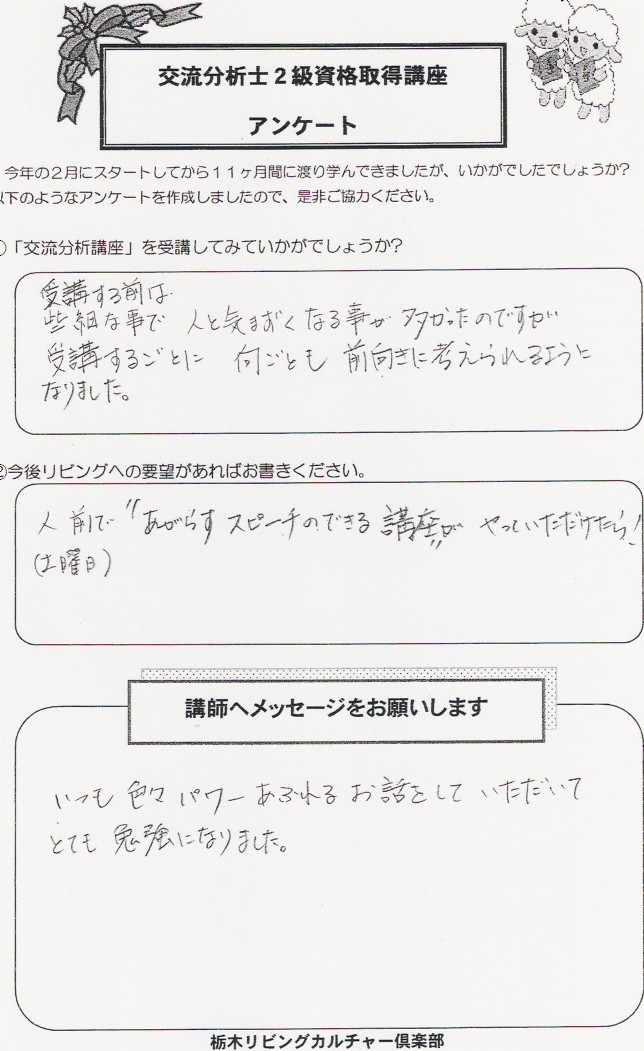 交流分析士２級資格取得講座
アンケート
今年の２月にスタートしてから１１ヶ月間に渡り学んできましたが、いかがでしたでしょうか?
以下のようなアンケートを作成しましたので、是非ご協力ください。
①「交流分析講座」を受講してみていかがでしょうか?
受講する前は
些細な事で 人と気まずくなる事が 多かったのですが
受講するごとに 何ごとも 前向きに考えられるように
なりました。
②今後リビングへの要望があればお書きください。
人前で "あがらす スピーチのできる 講座"が やっていただけたら!
(土曜日)
講師へメッセージをお願いします
いつも 色々 パワーあふれる お話をして いただいて
とても 勉強になりました。
栃木リビングカルチャー倶楽部